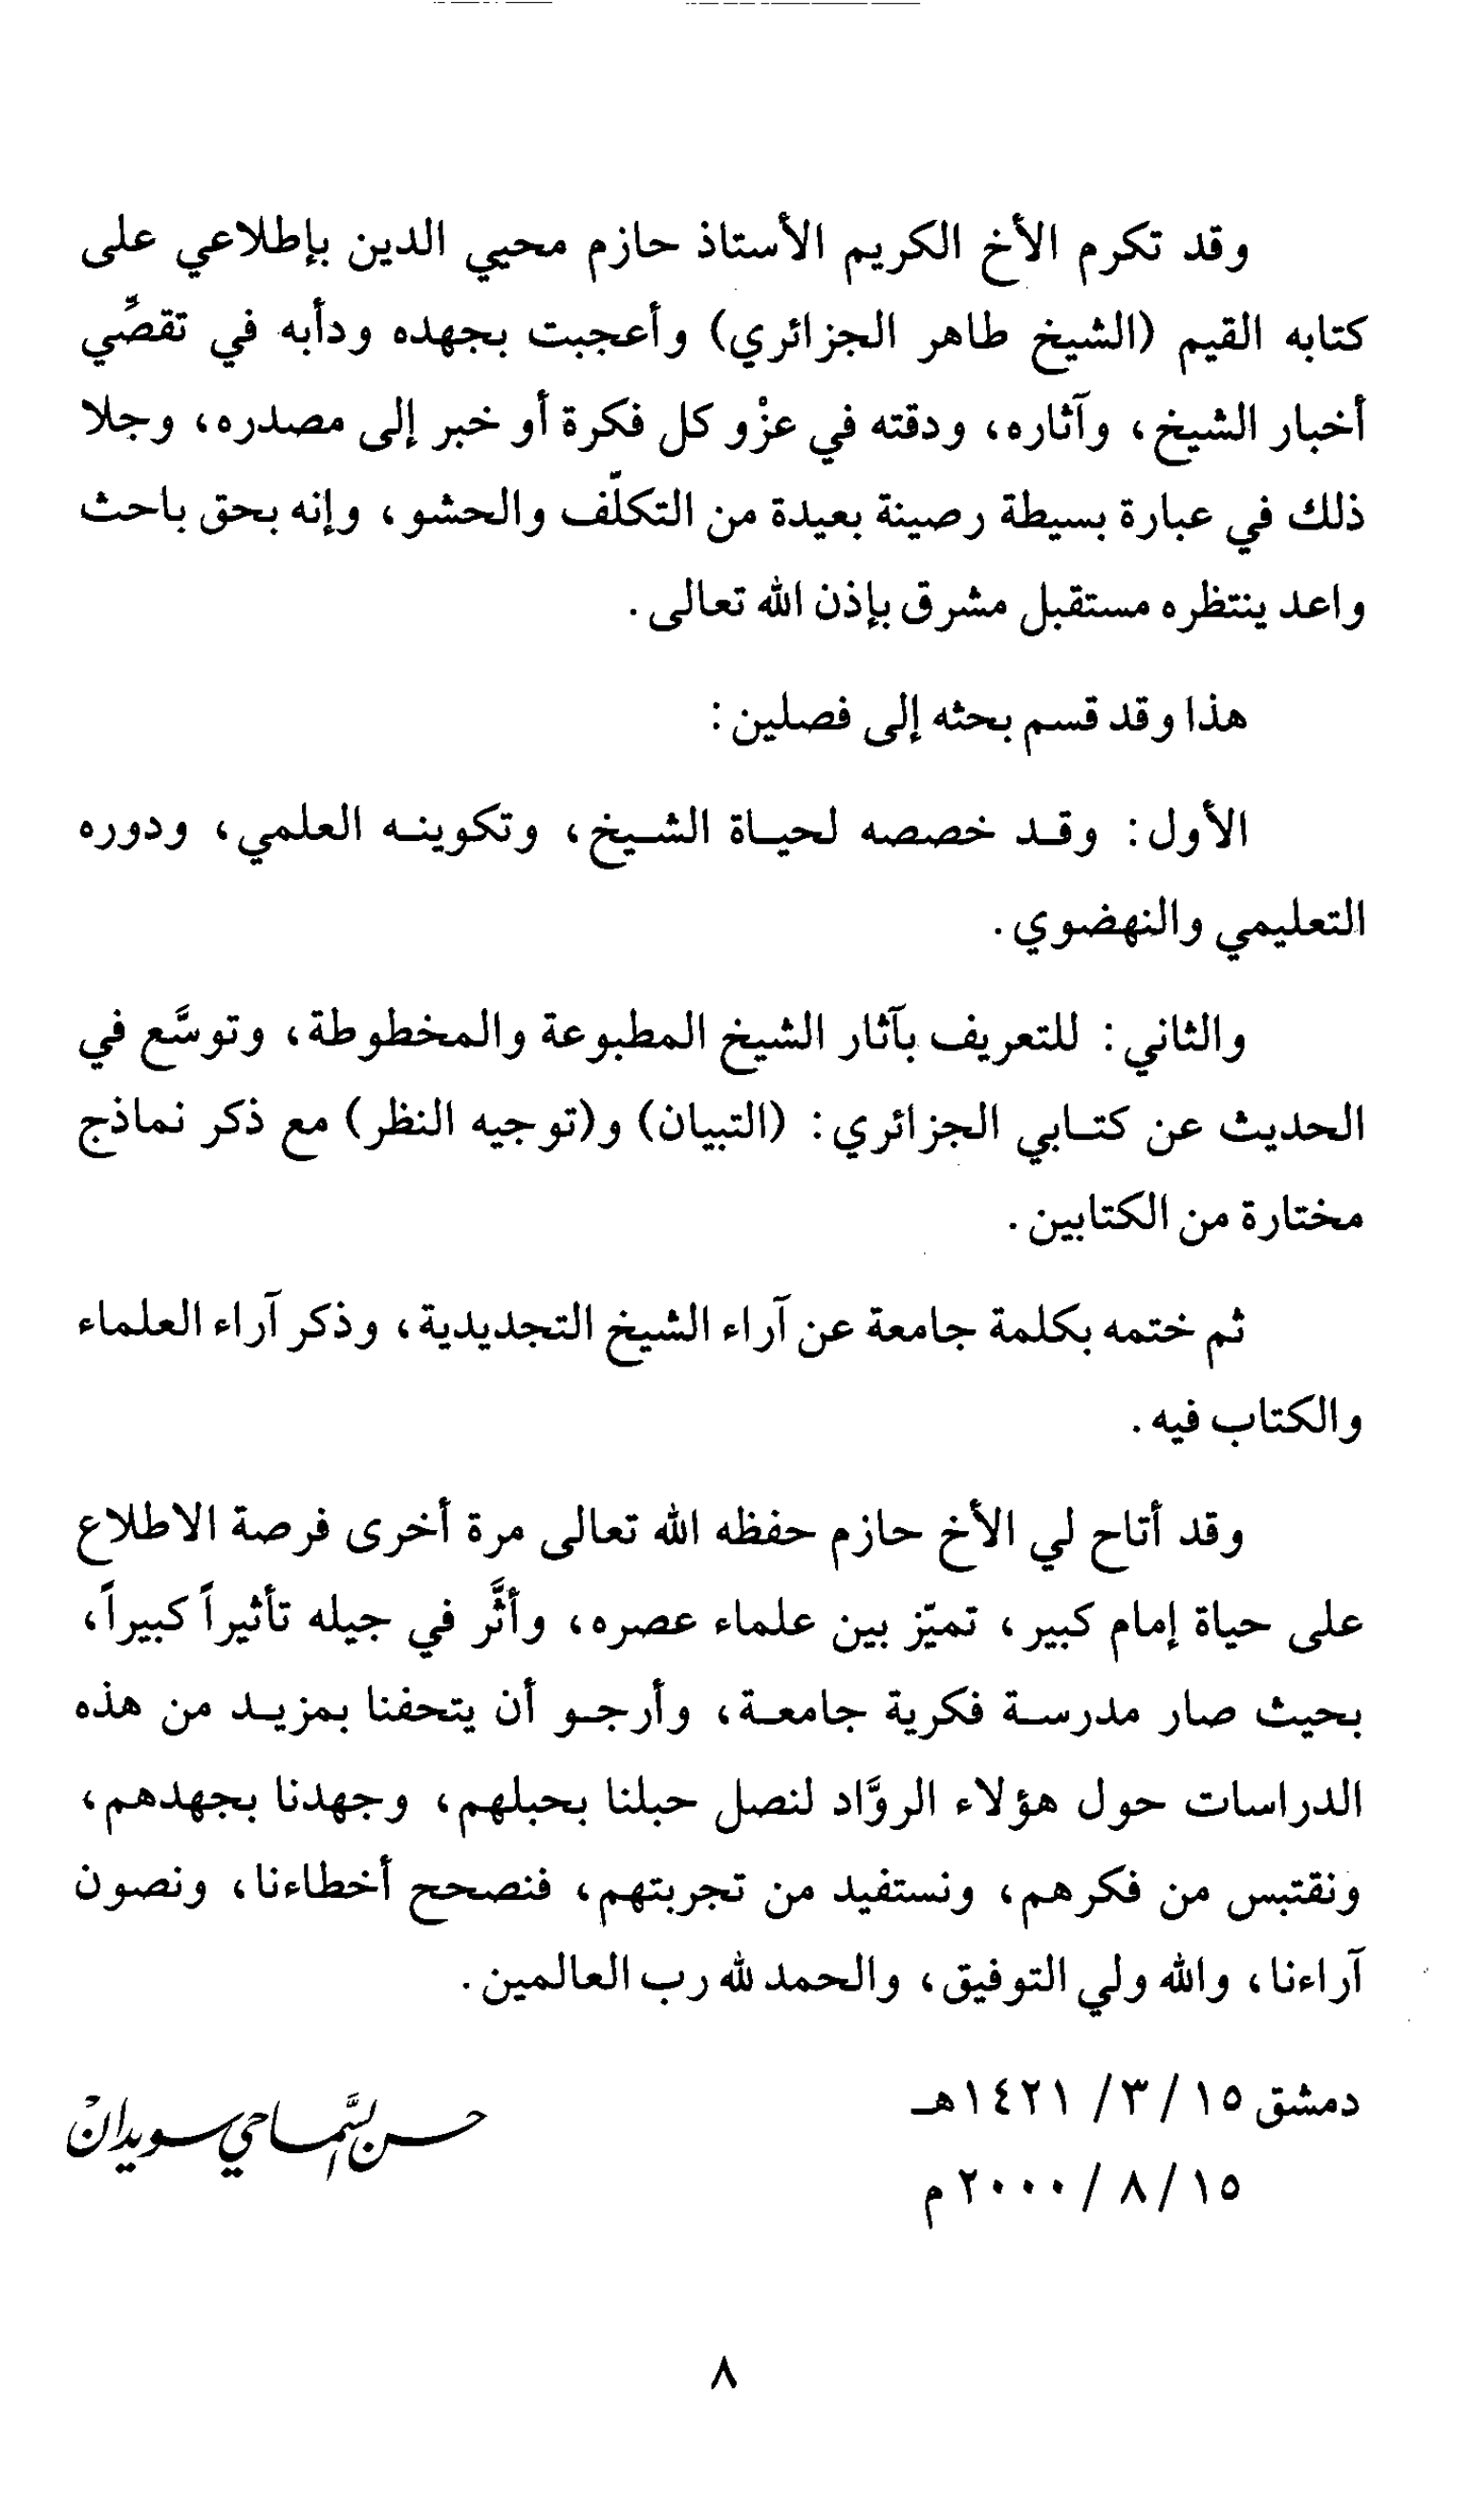 وقد تكرم الأخ الكريم الأستاذ حازم محيي الدين بإطلاعي على
كتابه القيم (الشيخ طاهر الجزائري) وأعجبت بجهده ودأبه في تقصِّي
أخبار الشيخ، وآثاره، ودقته في عزْو كل فكرة أو خبر إلى مصدره، وجلا
ذلك في عبارة بسيطة رصينة بعيدة من التكلّف والحشو، وإنه بحق باحث
واعد ينتظره مستقبل مشرق بإذن الله تعالى.
هذا وقد قسم بحثه إلى فصلين:
الأول: وقـد خصصه لحيـاة الشـيخ، وتكوينـه العلمي، ودوره
التعليمي والنهضوي.
والثاني: للتعريف بآثار الشيخ المطبوعة والمخطوطة، وتوسَّع في
الحديث عن كتـابي الجزائري: (التبيان) و(توجيه النظر) مع ذكر نماذج
مختارة من الكتابين.
ثم ختمه بكلمة جامعة عن آراء الشيخ التجديدية، وذكر آراء العلماء
والكتاب فيه.
وقد أتاح لي الأخ حازم حفظه الله تعالى مرة أخرى فرصة الاطلاع
على حياة إمام كبير، تميّز بين علماء عصره، وأثَّر في جيله تأثيراً كبيراً،
بحيث صار مدرسـة فكرية جامعـة، وأرجـو أن يتحفنا بمزيـد من هذه
الدراسات حول هؤلاء الروَّاد لنصل حبلنا بحبلهم، وجهدنا بجهدهم،
ونقتبس من فكرهم، ونستفيد من تجربتهم، فنصحح أخطاءنا، ونصون
آراءنا، والله ولي التوفيق، والحمد لله رب العالمين.
دمشق ١٥/ ٣/ ١٤٢١هـ
حسن السَّماحي سويدان
١٥/ ٨/ ٢٠٠٠م
٨